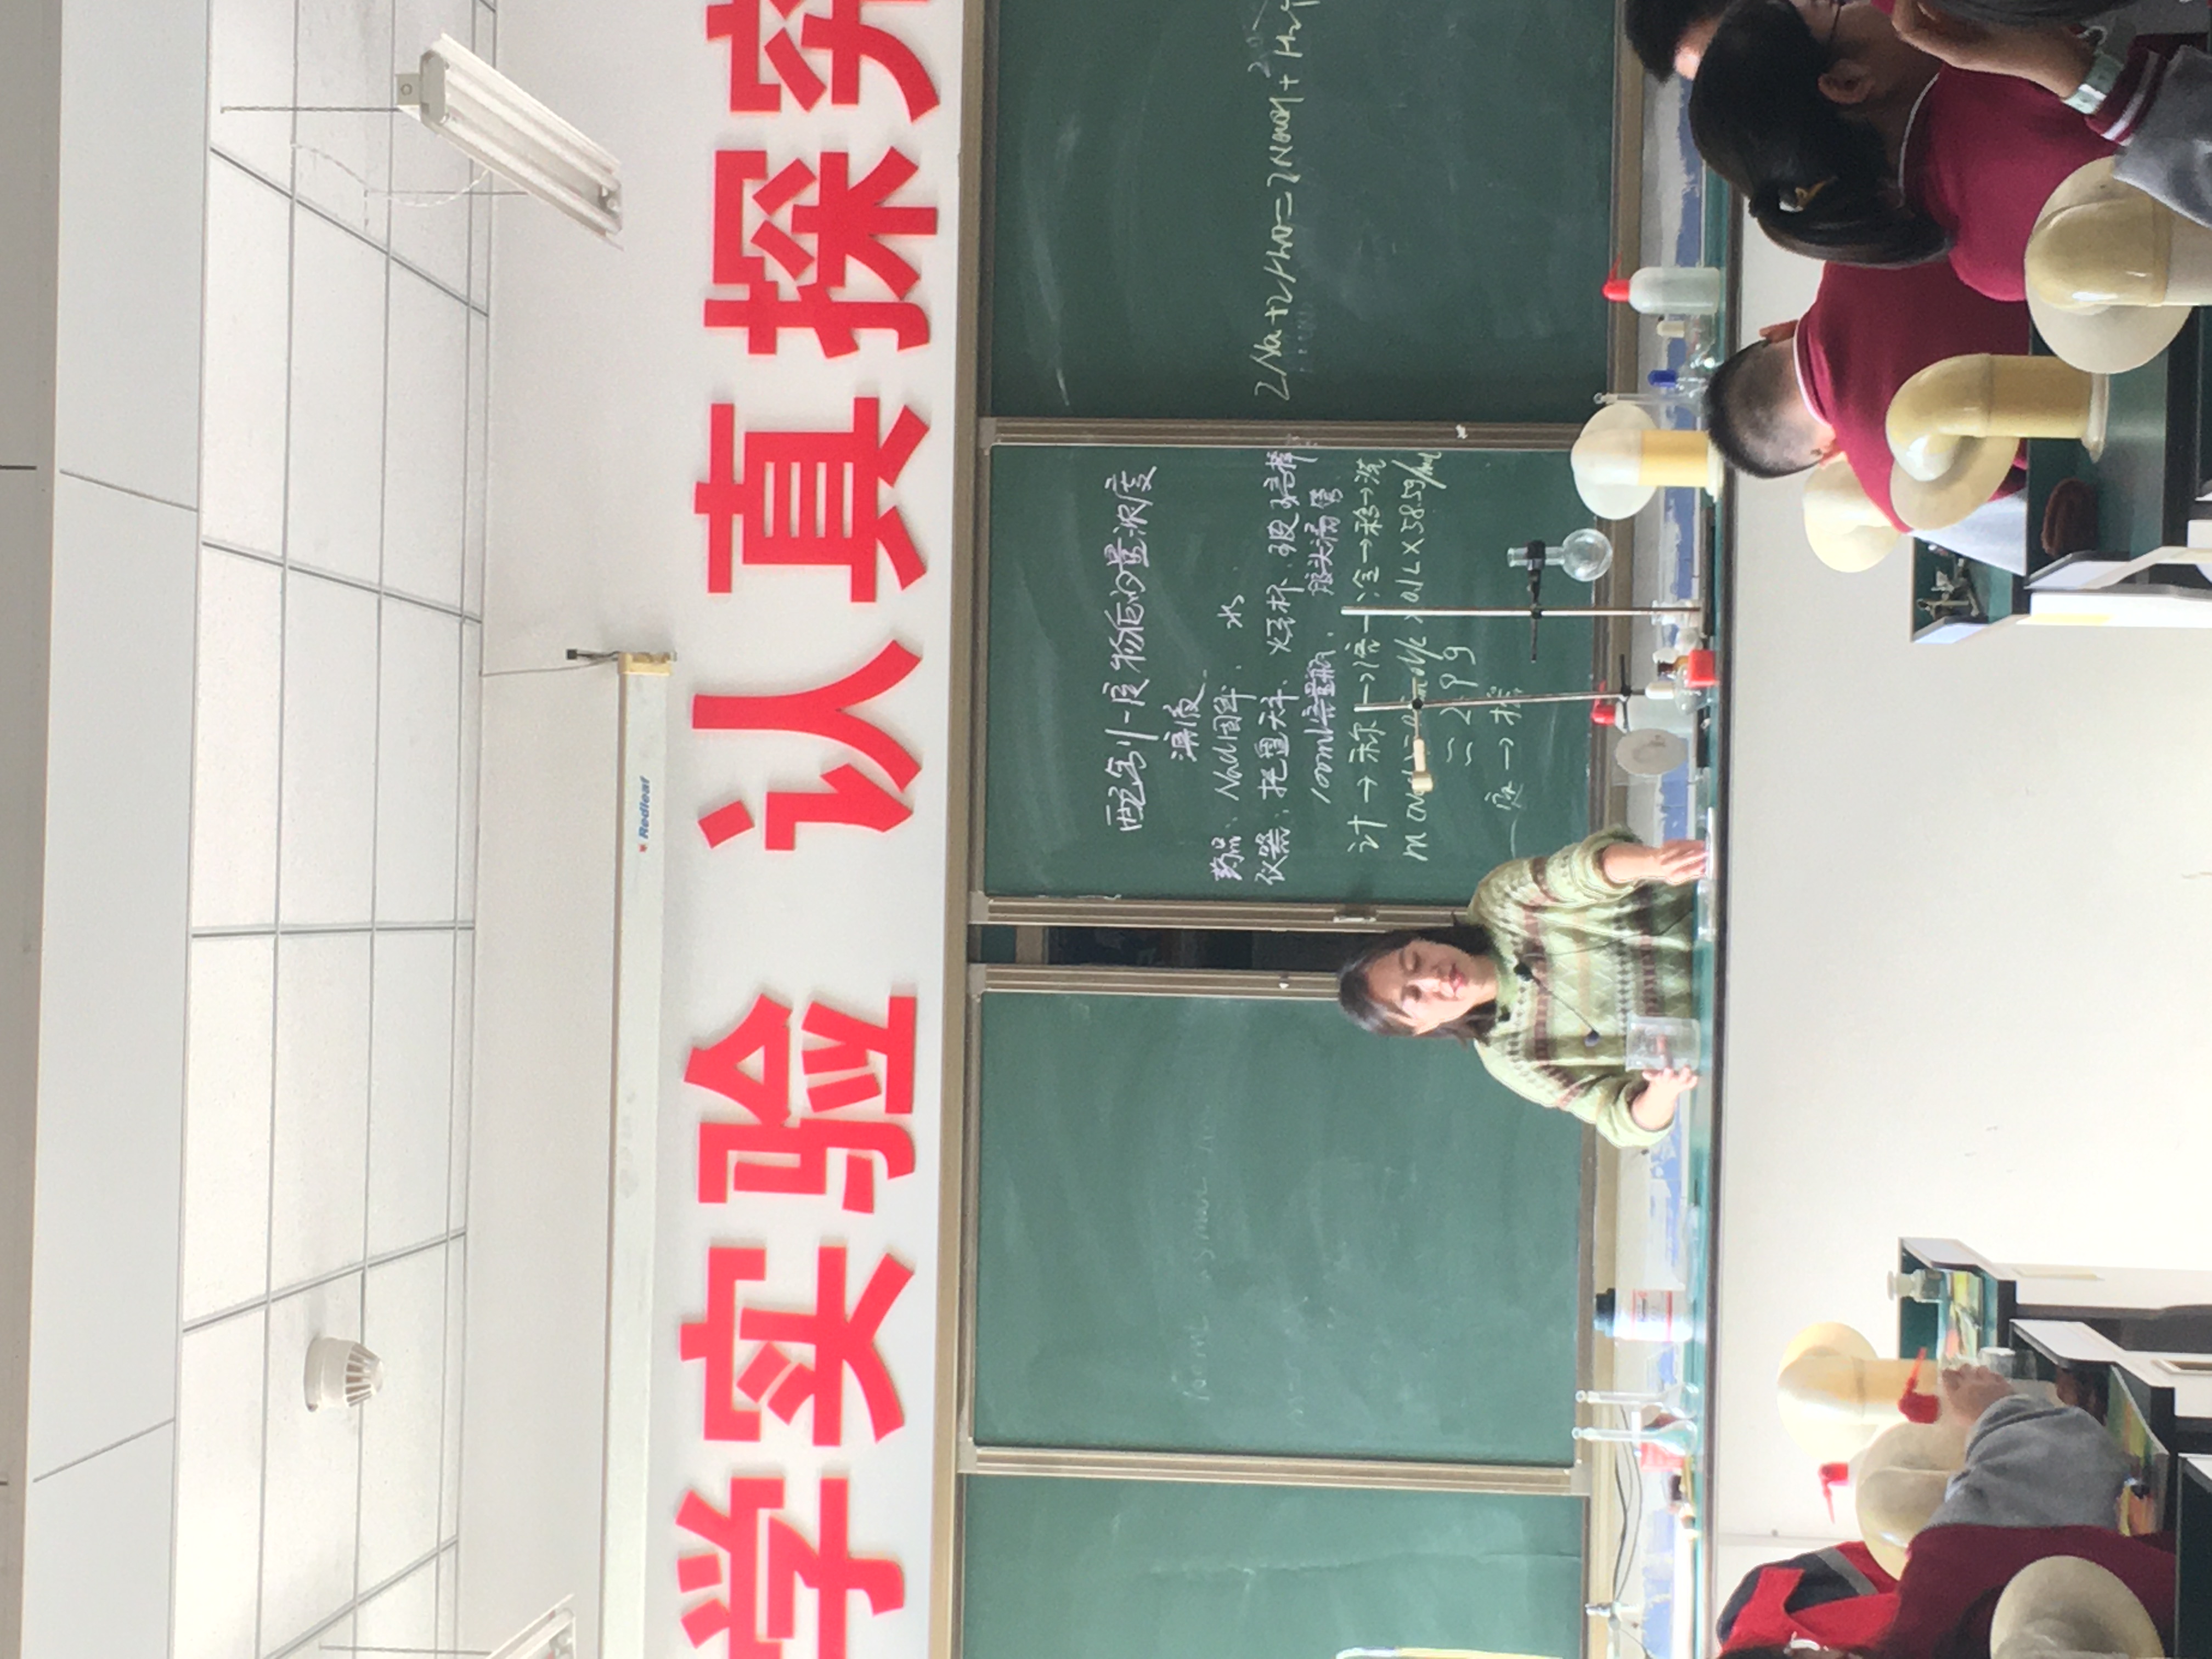 学实验 认真探究
Redleaf
配制一定物质的量浓度
溶液
药品: NaCl固体、水
仪器: 托盘天平、烧杯、玻璃棒
100ml容量瓶、胶头滴管
计→称→溶→冷→移→洗
0.1L×58.5g/mol
≈2.9g
定→摇
2Na+2H₂O=2NaOH+H₂↑